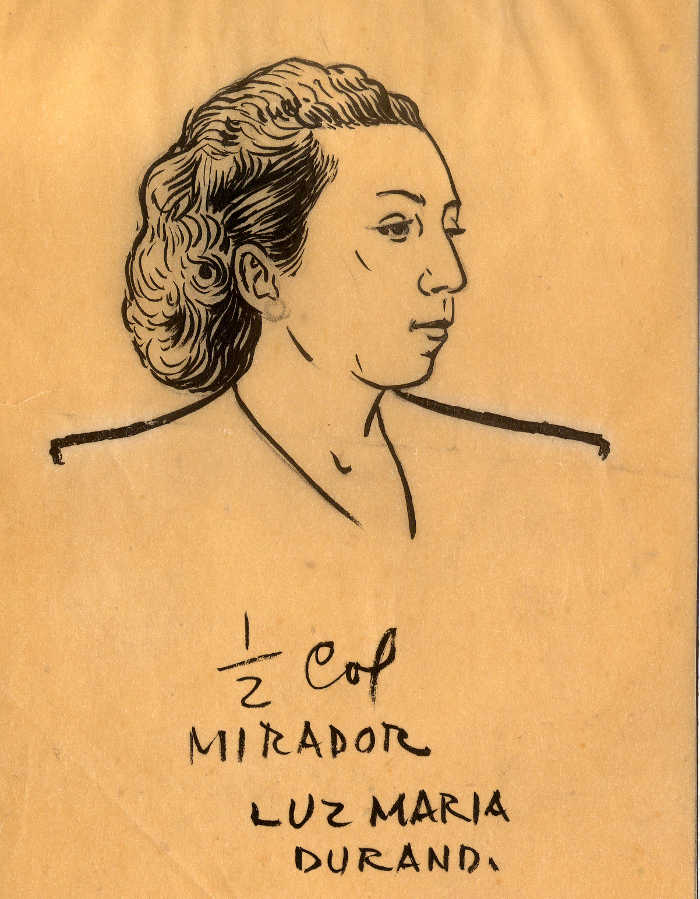 1/2 Col
MIRADOR
LUZ MARIA
DURAND.